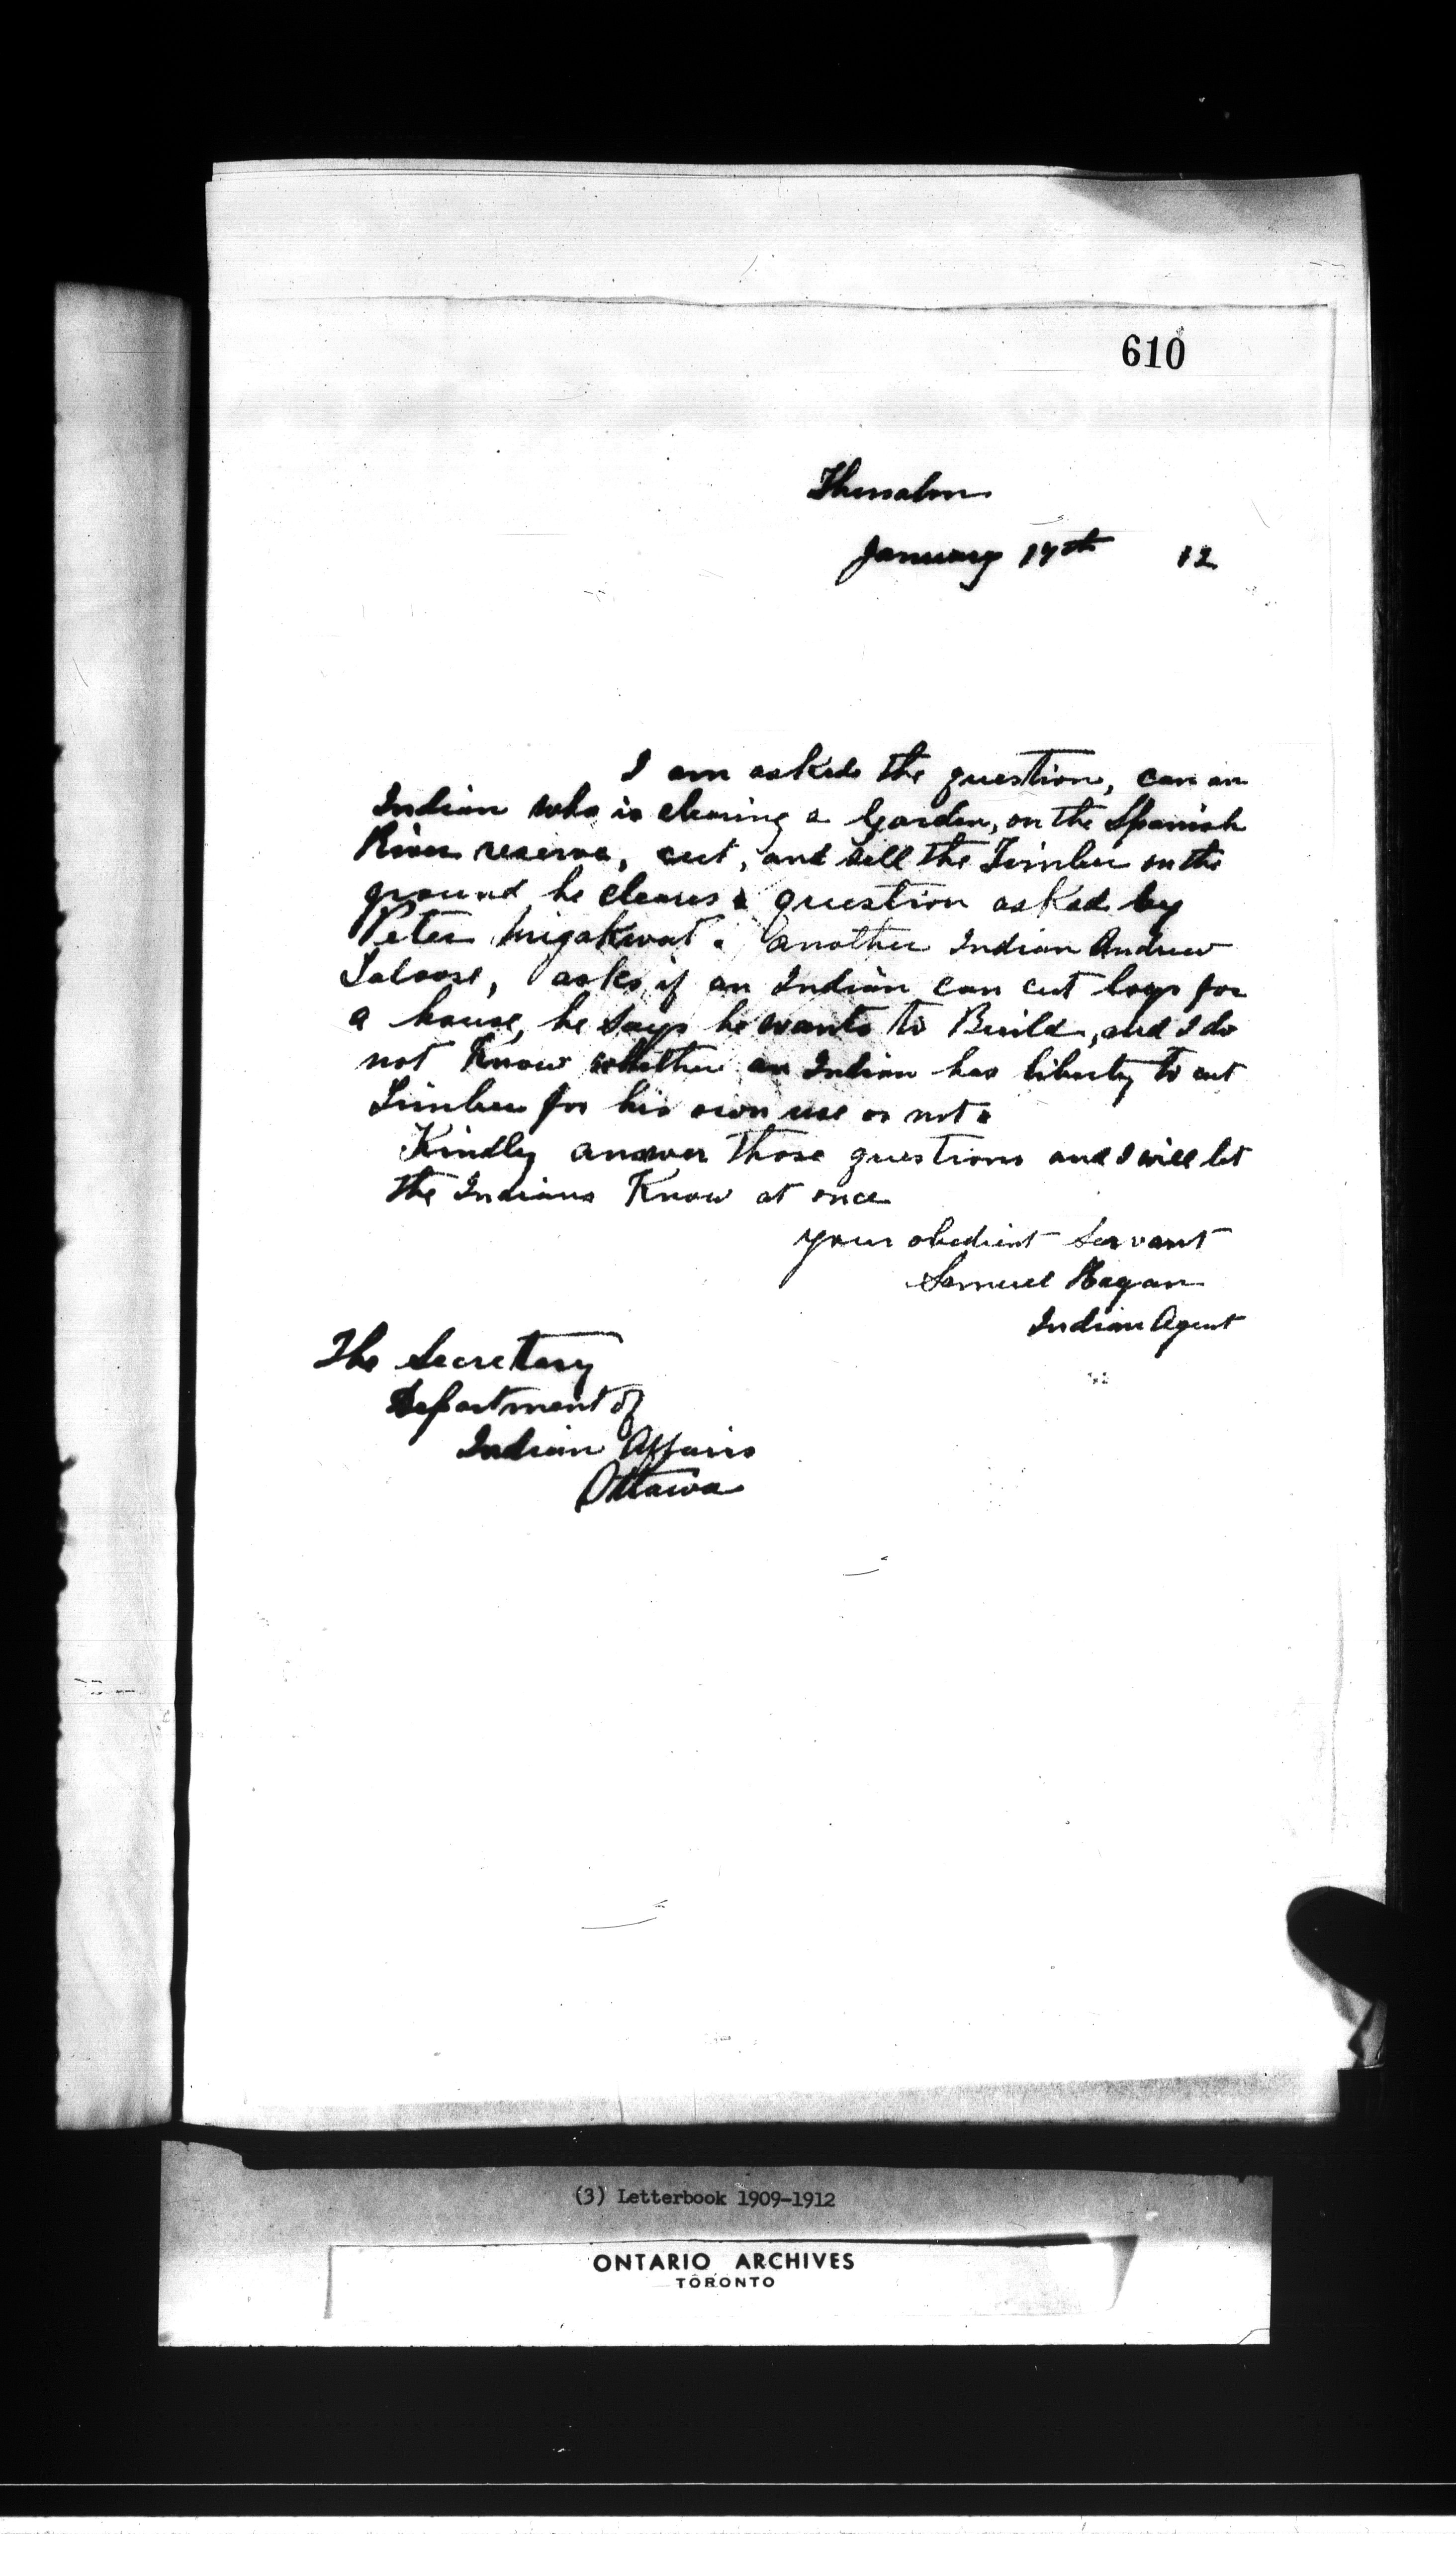 610
Thessalon
January 17th 12
I am asked the question, can an
Indian who is clearing a Garden, on the Spanish
River reserve, cut, and sell the Timber on the
ground he clears a question asked by
Peter Migakwat. another Indian Andrew
asks if an Indian can cut logs for
a house, he says he wants to Build, and I do
not Know whether an Indian has liberty to cut
Timber for his own use or not.
Kindly answer those questions and I will let
the Indians Know at once
your obedient Servant
Samuel Hagan
Indian Agent
The Secretary
Department of
Indian Affairs
Ottawa
(3) Letterbook 1909-1912
ONTARIO ARCHIVES
TORONTO